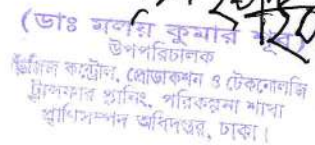 (ডাঃ মলয় কুমার শূর)
উপপরিচালক
কন্ট্রোল, প্রোডাকশন ও টেকনোলজি
ট্রান্সফার প্লানিং, পরিকল্পনা শাখা
প্রাণিসম্পদ অধিদপ্তর, ঢাকা।